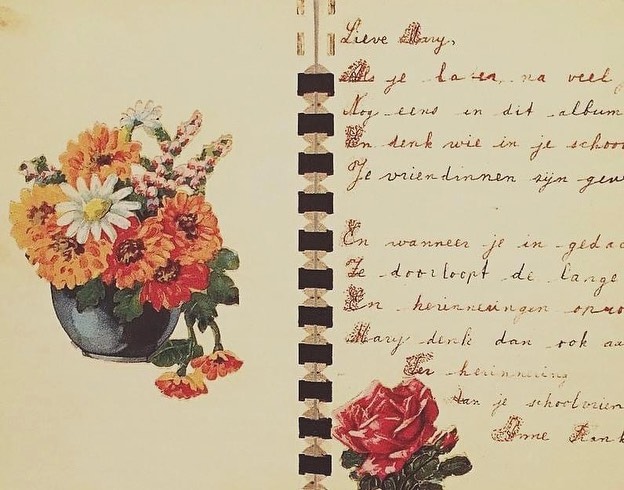 Lieve Mary,
Als je later, na veel j
Nog eens in dit album
En denk wie in je schoo
Je vriendinnen zijn gew
En wanneer je in gedac
Je doorloopt de lange
En herinneringen op
Mary denk dan ook aa
Ter herinnering
Aan je schoolvrien
Anne Frank